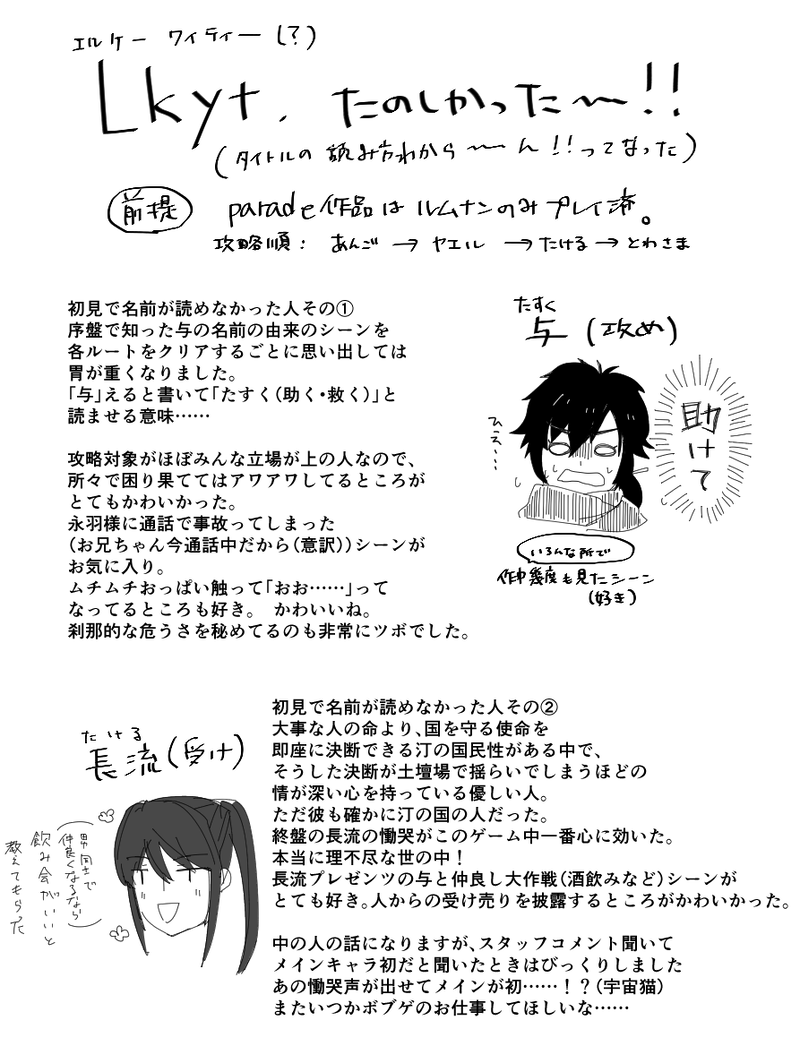 エルケー ワイティー(?)
Lkyt. たのしかった〜!!
(タイトルの読み方わから〜ん!!ってなった)
前提 parade作品はルムナンのみプレイ済。
攻略順: あんご→ヤエル→たける→とわさま
初見で名前が読めなかった人その①
序盤で知った与の名前の由来のシーンを
各ルートをクリアするごとに思い出しては
胃が重くなりました。
「与」えると書いて「たすく(助く・救く)」と
読ませる意味……
攻略対象がほぼみんな立場が上の人なので、
所々で困り果ててはアワアワしてるところが
とてもかわいかった。
永羽様に通話で事故ってしまった
(お兄ちゃん今通話中だから(意訳))シーンが
お気に入り。
ムチムチおっぱい触って「おお……」って
なってるところも好き。 かわいいね。
刹那的な危うさを秘めてるのも非常にツボでした。
たすく
与(攻め)
助けて
ひええ…
いろんな所で
作中幾度も見たシーン
(好き)
たける
長流(受け)
男同士で
仲良くなるなら
飲み会がいいと
教えてもらった
初見で名前が読めなかった人その②
大事な人の命より、国を守る使命を
即座に決断できる汀の国民性がある中で、
そうした決断が土壇場で揺らいでしまうほどの
情が深い心を持っている優しい人。
ただ彼も確かに汀の国の人だった。
終盤の長流の慟哭がこのゲーム中一番心に効いた。
本当に理不尽な世の中!
長流プレゼンツの与と仲良し大作戦(酒飲みなど)シーンが
とても好き。人からの受け売りを披露するところがかわいかった。
中の人の話になりますが、スタッフコメント聞いて
メインキャラ初だと聞いたときはびっくりしました
あの慟哭声が出せてメインが初……!?(宇宙猫)
またいつかボブゲのお仕事してほしいな……